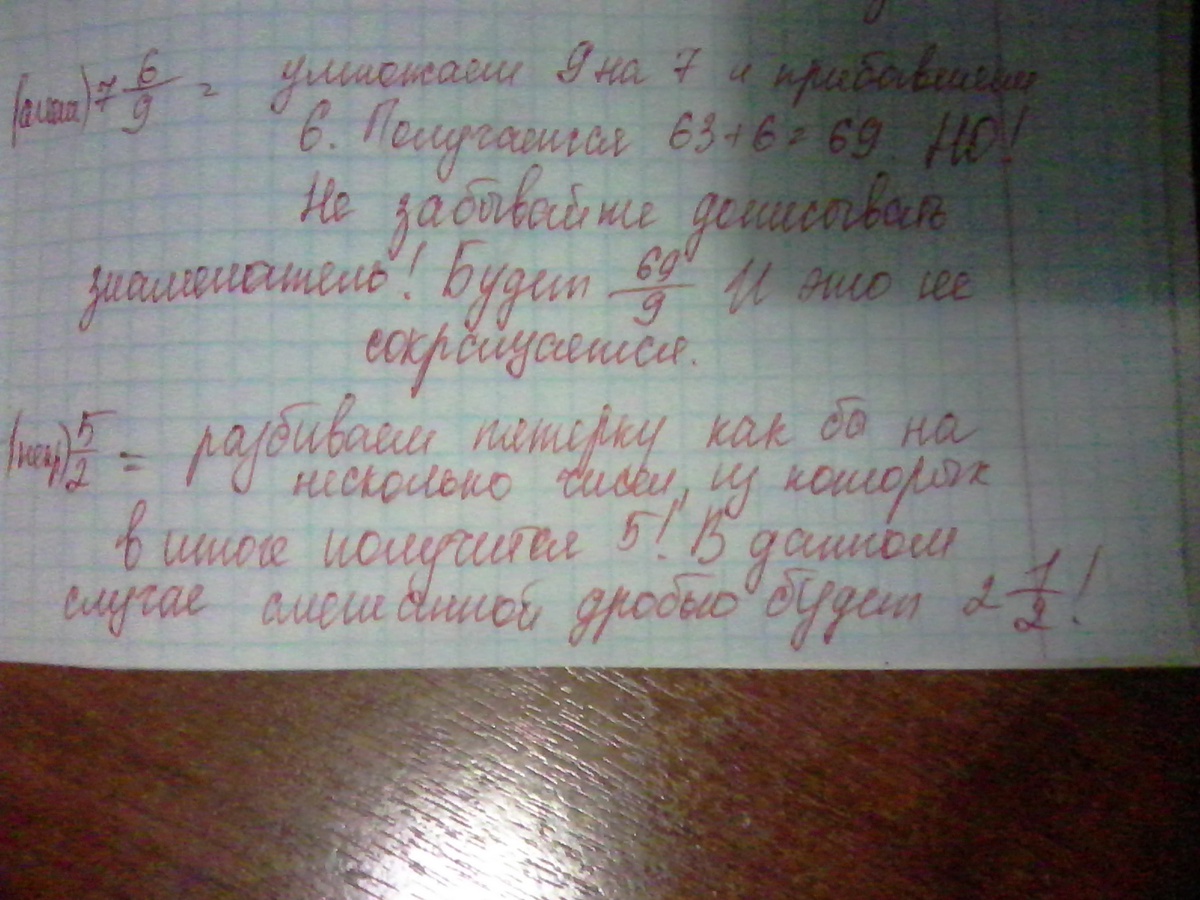 (смеш) 7 6/9 = умножаем 9 на 7 и прибавляем
6. Получается 63+6=69 НО!
Не забывайте дописывать
знаменатель! Будет 69/9 И это не
сокращается.
(непр) 5/2 = разбиваем пятерку как бы на
несколько чисел, из которых
в итоге получится 5! В данном
случае смешанной дробью будет 2 1/2!